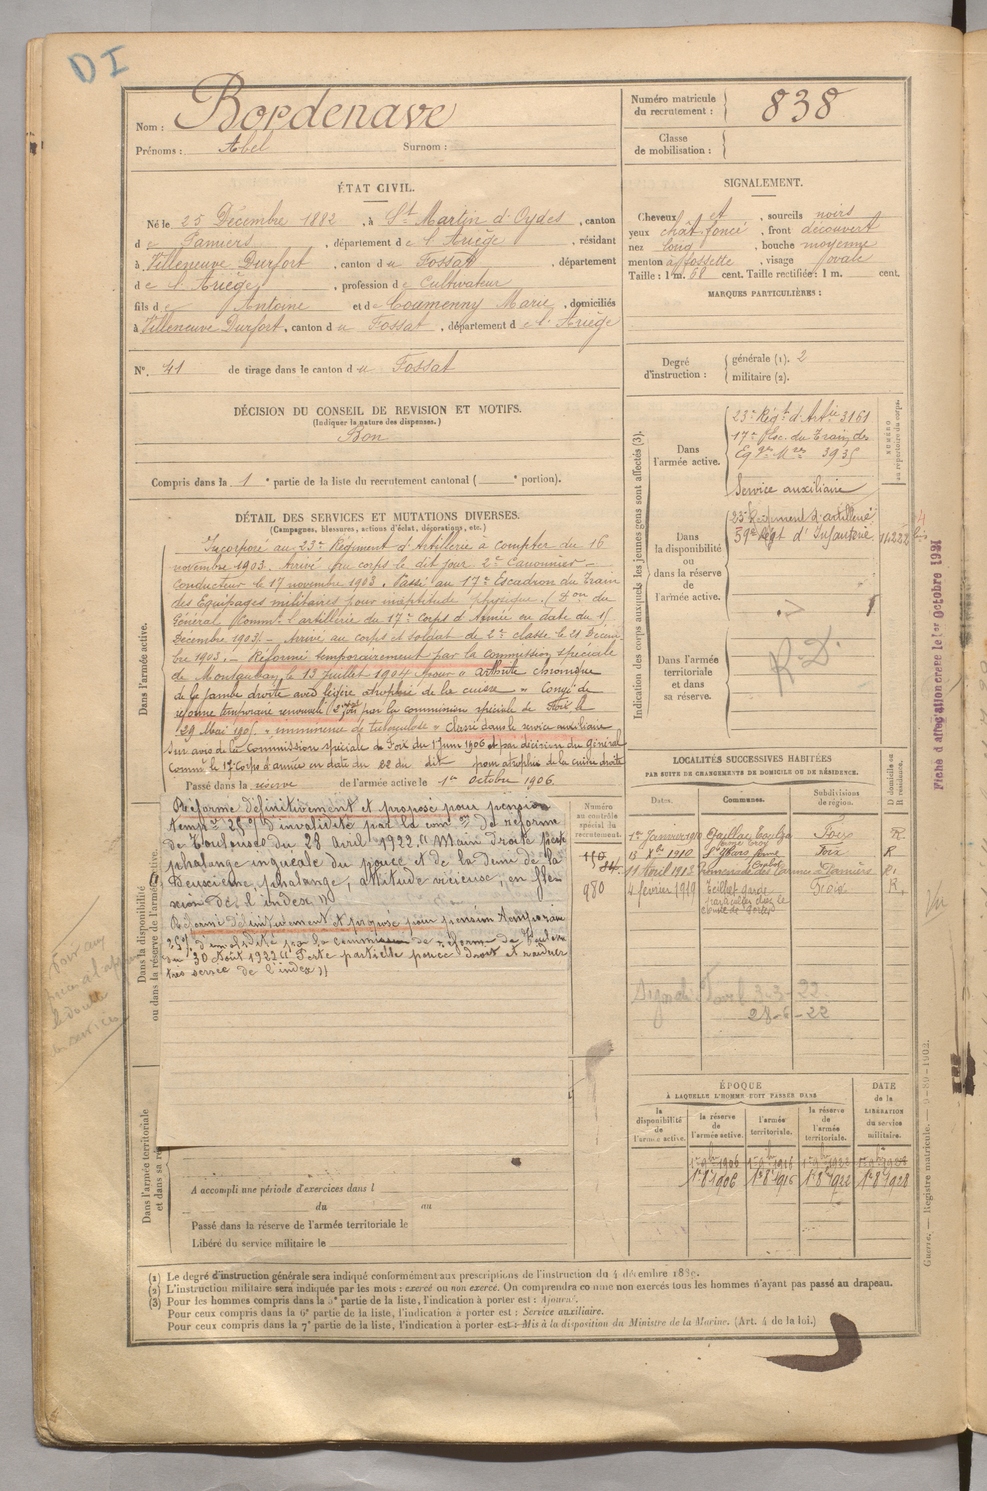 DI
Nom : Bordenave
Prénoms : Abel Surnom :
Numéro matricule du recrutement : 838
Classe de mobilisation :
ÉTAT CIVIL.
Né le 25 Décembre 1882, à St Martin d'Oydes, canton
de Pamiers, département de l'Ariège, résidant
à Villeneuve Durfort, canton du Fossat, département
de l'Ariège, profession de Cultivateur
fils de Antoine et de Coumenny Marie, domiciliés
à Villeneuve Durfort, canton du Fossat, département de l'Ariège
N° 41 de tirage dans le canton du Fossat
SIGNALEMENT.
Cheveux et, sourcils noirs
yeux chât. foncé, front découvert
nez long, bouche moyenne
menton à fossette, visage ovale
Taille : 1 m. 68 cent. Taille rectifiée : 1 m. cent.
MARQUES PARTICULIÈRES :
Degré d'instruction : générale (1). 2
militaire (2).
DÉCISION DU CONSEIL DE REVISION ET MOTIFS.
(Indiquer la nature des dispenses.)
Bon
Compris dans la 1e partie de la liste du recrutement cantonal ( e portion).
DÉTAIL DES SERVICES ET MUTATIONS DIVERSES.
(Campagnes, blessures, actions d'éclat, décorations, etc.)
Dans l'armée active.
Incorporé au 23e Régiment d'Artillerie à compter du 16
novembre 1903. Arrivé au corps le dit jour 2e Canonnier
Conducteur le 17 novembre 1903. Passé au 17e Escadron du Train
des Equipages militaires pour inaptitude physique. (Don du
Général Comm. l'artillerie du 17e Corps d'Armée en date du 15
Décembre 1903). - Arrivé au corps et soldat de 2e classe le 21 Décem-
bre 1903. - Réformé temporairement par la commission spéciale
de Montauban le 13 Juillet 1904 pour « arthrite chronique
de la jambe droite avec légère atrophie de la cuisse » Congé de
réforme temporaire renouvelé par la commission spéciale de Foix le
29 Mai 1905 « imminence de tuberculose » Classé dans le service auxiliaire
sur avis de la Commission spéciale de Foix du 1 Juin 1906 et par décision du Général
Commt le 17e Corps d'armée en date du 22 du dit pour atrophie de la cuisse droite
Passé dans la réserve de l'armée active le 1er Octobre 1906.
Dans la disponibilité ou dans la réserve de l'armée active.
Réformé définitivement et proposé pour pension
tempre 25% d'invalidité par la comon de réforme
de Toulouse du 28 Avril 1922. (( Main droite perte
phalange unguéale du pouce et de la demi de la
Deuxième phalange, attitude vicieuse, en fle-
xion de l'index ))
Réformé définitivement et proposé pour pension temporaire
25% d'invalidité par la commission de réforme de
du 30 Août 1922 (( Perte partielle pouce droit et raideur
très serrée de l'index ))
Dans l'armée territoriale et dans sa réserve.
A accompli une période d'exercices dans l
du au
Passé dans la réserve de l'armée territoriale le
Libéré du service militaire le
Indication des corps auxquels les jeunes gens sont affectés (3).
Dans l'armée active.
23e Régt d'Artie 3161
17e Esc. du Train des
Eq. Mres 3935
Service auxiliaire
NUMÉRO au répertoire du corps.
Dans la disponibilité ou dans la réserve de l'armée active.
23e Régiment d'artillerie
59e Régt d'Infanterie
Dans l'armée territoriale et dans sa réserve.
R.D.
LOCALITÉS SUCCESSIVES HABITÉES
PAR SUITE DE CHANGEMENTS DE DOMICILE OU DE RÉSIDENCE.
Numéro au contrôle spécial du recrutement.
Dates. Communes. Subdivisions de région. D domicile ou R résidence.
1er Janvier 1910 Foix R.
13 Xbre 1910 Foix R
11 Avril 1913 Pamiers R.
980 4 février 1919 Foix R.
3-3-22
28-6-22
ÉPOQUE
À LAQUELLE L'HOMME DOIT PASSER DANS
la disponibilité de l'armée active. la réserve de l'armée active. l'armée territoriale. la réserve de l'armée territoriale. DATE de la LIBÉRATION du service militaire.
1er 8bre 1906 1er 8bre 1916 1er 8bre 1922 1er 8bre 1928
Fiche d'affectation créée le 1er Octobre 1921
Guerre. — Registre matricule. — 9-89-1902.
(1) Le degré d'instruction générale sera indiqué conformément aux prescriptions de l'instruction du 4 décembre 1889.
(2) L'instruction militaire sera indiquée par les mots : exercé ou non exercé. On comprendra comme non exercés tous les hommes n'ayant pas passé au drapeau.
(3) Pour les hommes compris dans la 5e partie de la liste, l'indication à porter est : Ajourné.
Pour ceux compris dans la 6e partie de la liste, l'indication à porter est : Service auxiliaire.
Pour ceux compris dans la 7e partie de la liste, l'indication à porter est : Mis à la disposition du Ministre de la Marine. (Art. 4 de la loi.)